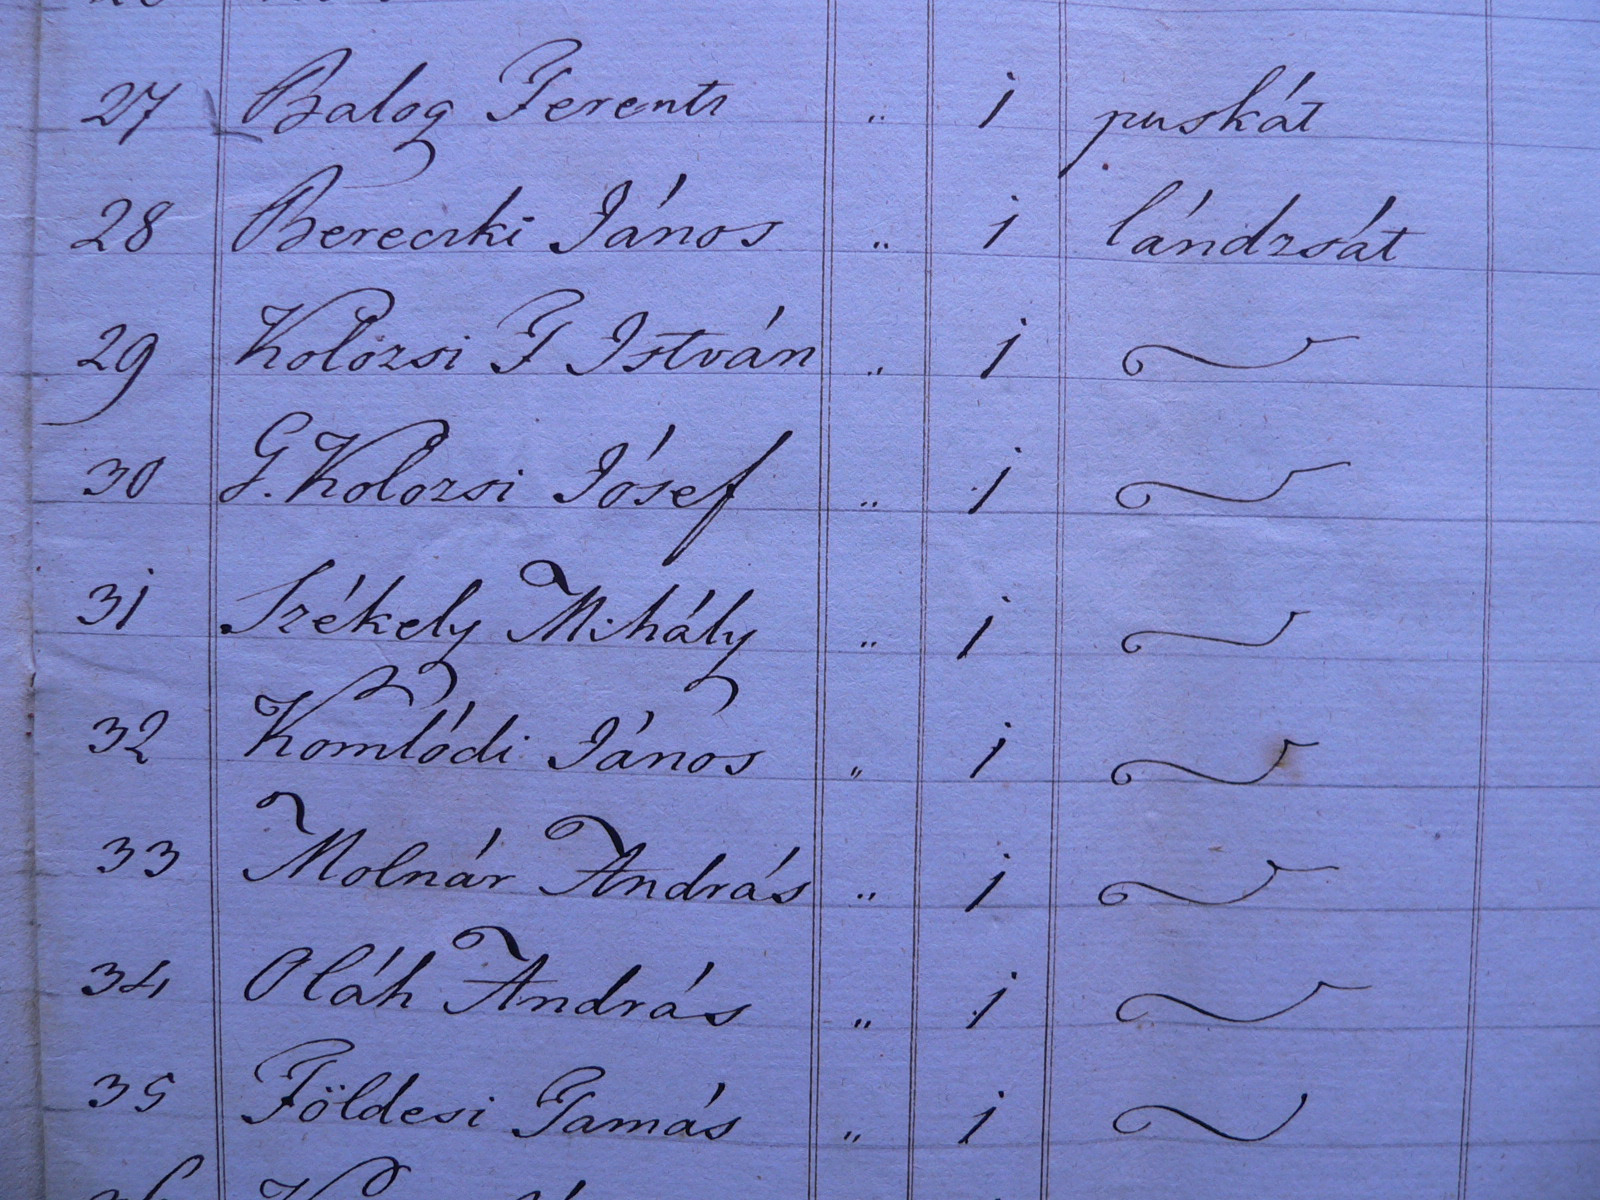 27 Balog Ferentz „ 1 puskát
28 Bereczki János „ 1 lándzsát
29 Kolozsi F István „ 1 〃
30 G. Kolozsi Jósef „ 1 〃
31 Székely Mihály „ 1 〃
32 Komlódi János „ 1 〃
33 Molnár András „ 1 〃
34 Oláh András „ 1 〃
35 Földesi Tamás „ 1 〃